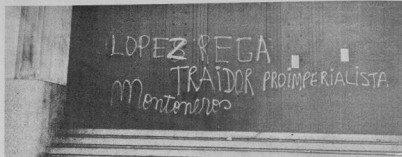 LOPEZ REGA
TRAIDOR PROIMPERIALISTA
Montoneros